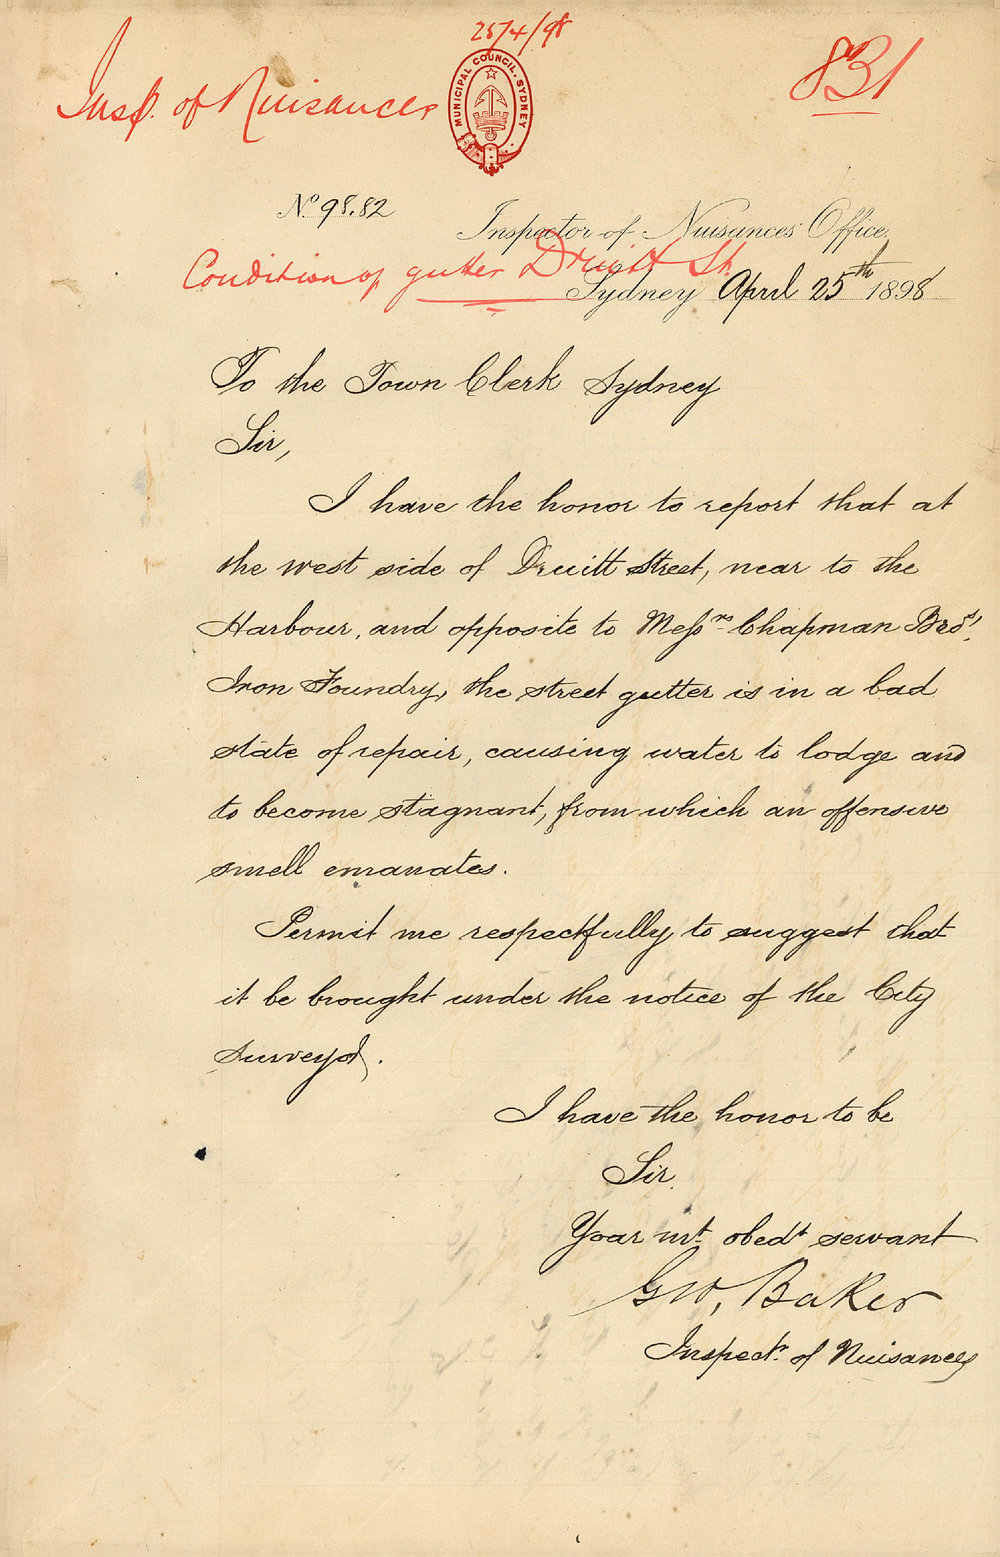 25/4/98
831
Insp. of Nuisances
MUNICIPAL COUNCIL. SYDNEY
No. 98.82
Inspector of Nuisances' Office,
Condition of gutter Druitt St
Sydney April 25th 1898
To the Town Clerk Sydney
Sir,
I have the honor to report that at
the west side of Druitt Street, near to the
Harbour, and opposite to Messrs Chapman Bros'.
Iron Foundry, the street gutter is in a bad
state of repair, causing water to lodge and
to become stagnant, from which an offensive
smell emanates.
Permit me respectfully to suggest that
it be brought under the notice of the City
Surveyor.
I have the honor to be
Sir.
Your mt obedt servant
Geo, Baker
Inspectr of Nuisances